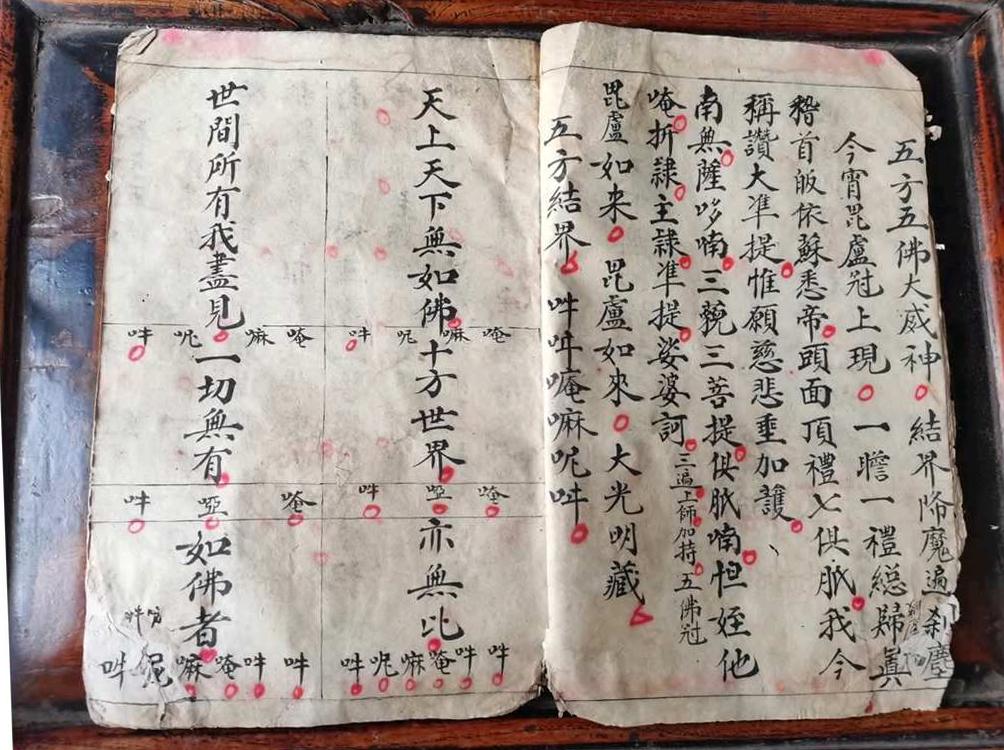 五方五佛大威神 結界降魔遍刹塵
今宵毘盧冠上現 一瞻一禮緫歸眞
稽首皈依蘇悉帝頭面頂禮七俱胝我今
稱讚大凖提惟願慈悲垂加護
南無薩哆喃三藐三菩提俱胝喃怛姪他
唵折隸主隸凖提娑婆訶 三遍上師加持五佛冠
毘盧如来 毘盧如來 大光明藏
五方結界 吽吽唵嘛呢吽
天上天下無如佛 十方世界 亦無比
唵嘛呢吽
唵啞吽
吽吽唵嘛呢吽
世間所有我盡見 一切無有 如佛者
唵嘛呢吽
唵啞吽
吽吽唵嘛呢吽